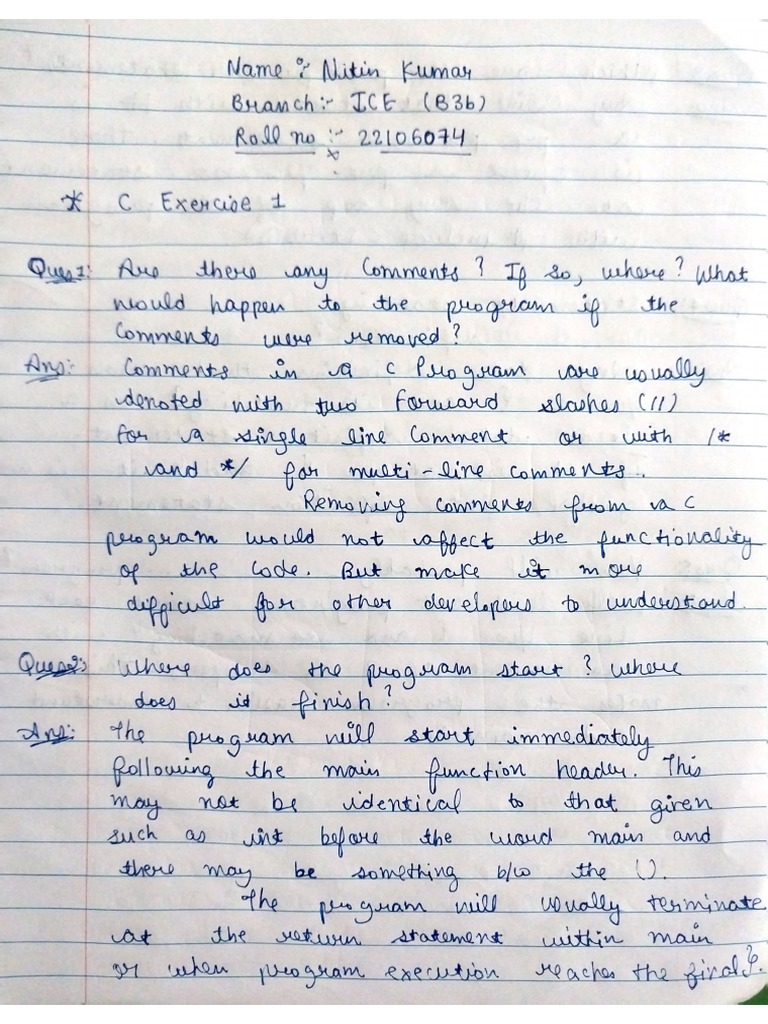 Name :- Nitin Kumar
Branch :- ICE (B3b)
Roll no :- 22106074
* C Exercise 1
Ques1: Are there any Comments ? If so, where? What
would happen to the program if the
Comments were removed ?
Ans: Comments in a C Program are usually
denoted with two forward slashes (//)
for a single line Comment or with /*
and */ for multi-line comments.
Removing comments from a C
program would not affect the functionality
of the code. But make it more
difficult for other developers to understand.
Ques2: Where does the program start ? where
does it finish ?
Ans: The program will start immediately
following the main function header. This
may not be identical to that given
such as int before the word main and
there may be something b/w the ().
The program will usually terminate
at the return statement within main
or when program execution reaches the final }.